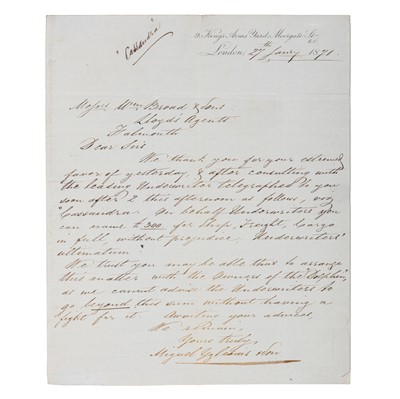 "Cassandra"
9, King's Arms Yard, Moorgate St.
E.C.
London, 27th Jany 1871.
Messrs Wm Broad & Sons
Lloyd's Agents
Falmouth
Dear Sirs
We thank you for your esteemed
favor of yesterday, & after consulting with
the leading Underwriter telegraphed to you
soon after 2 this afternoon as follows, viz
"Cassandra. On behalf Underwriters you
can name £300 for Ship, Freight, Cargo
in full, without prejudice, Underwriters'
ultimatum"
We trust you may be able thus to arrange
this matter with the Owners of the "Dolphin",
as we cannot advise the Underwriters to
go beyond this sum without having a
fight for it. Awaiting your advices,
We remain,
Yours truly,
Miguel Yglesias &Son